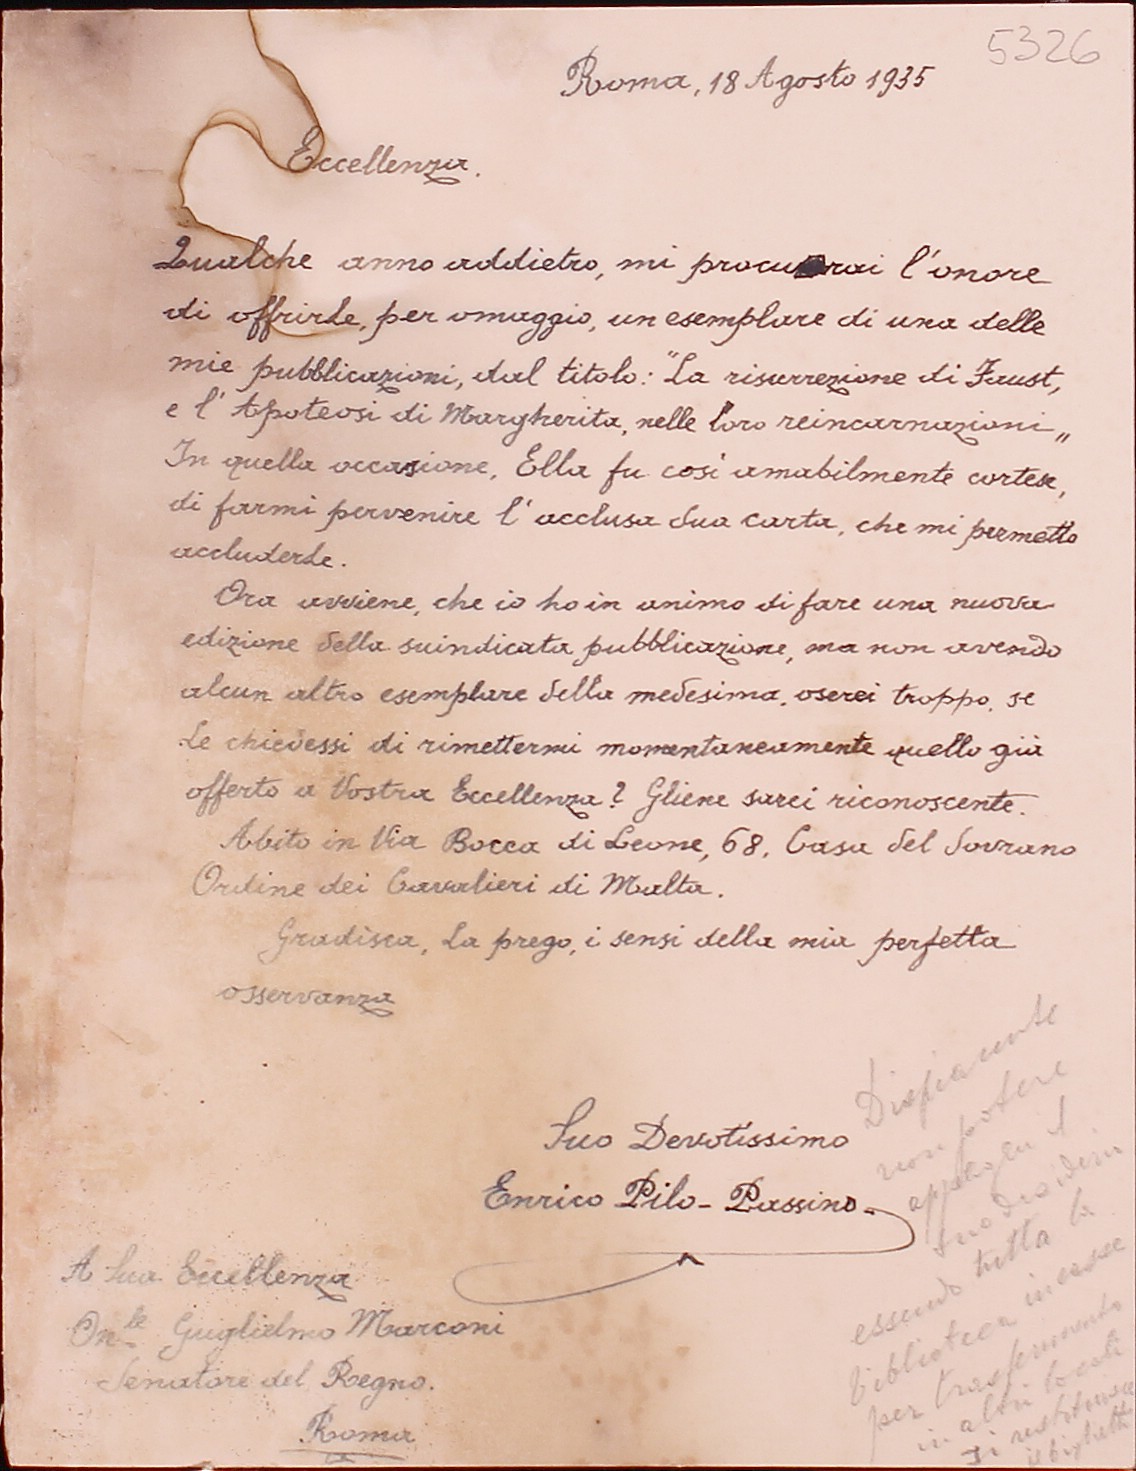 5326
Roma, 18 Agosto 1935
Eccellenza.
Qualche anno addietro, mi procurai l'onore
di offrirLe, per omaggio, un esemplare di una delle
mie pubblicazioni, dal titolo: "La risurrezione di Faust,
e l'Apoteosi di Margherita, nelle loro reincarnazioni„
In quella occasione, Ella fu così amabilmente cortese,
di farmi pervenire l'acclusa Sua carta, che mi permetto
accluderLe.
Ora avviene, che io ho in animo di fare una nuova
edizione della suindicata pubblicazione, ma non avendo
alcun altro esemplare della medesima, oserei troppo, se
Le chiedessi di rimettermi momentaneamente quello già
offerto a Vostra Eccellenza? Gliene sarei riconoscente.
Abito in Via Bocca di Leone, 68, Casa del Sovrano
Ordine dei Cavalieri di Malta.
Gradisca, La prego, i sensi della mia perfetta
osservanza
Suo Devotissimo
Enrico Pilo-Passino
A Sua Eccellenza
On.le Guglielmo Marconi
Senatore del Regno.
Roma
Dispiacente
non potere
il
suo desiderio
essendo tutta la
biblioteca in casse
per trasferimento
in altri locali
si restituisce
il biglietto